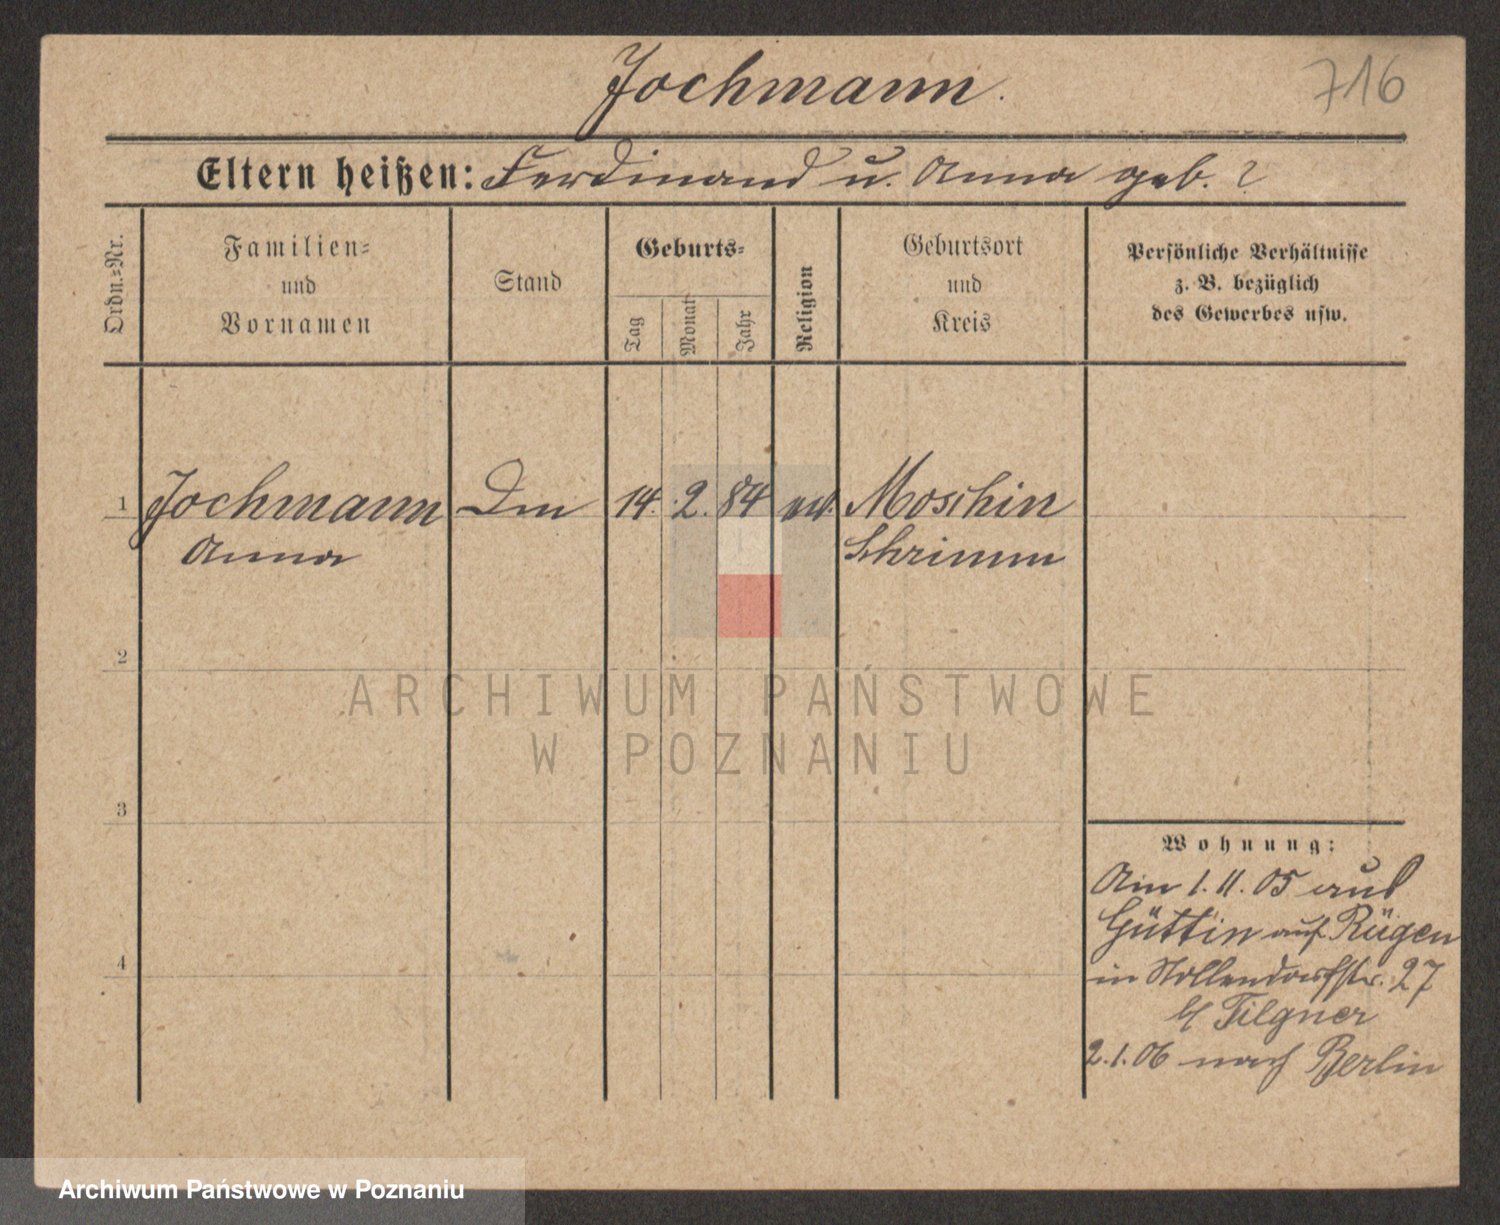 Jochmann.
716
Eltern heißen: Ferdinand u. Anna geb. ?
Ordn.=Nr.
Familien=
und
Vornamen
Stand
Geburts=
Tag
Monat
Jahr
Religion
Geburtsort
und
Kreis
Persönliche Verhältnisse
z. B. bezüglich
des Gewerbes usw.
1 Jochmann 14. 2. 84 Moschin
Anna Schrimm
2
ARCHIWUM PAŃSTWOWE
W POZNANIU
3
Wohnung:
Am 1.11.05 aus
Güttin auf Rügen
4
in Nollendorfstr. 27
b/ Tilgner
2.1.06 nach Berlin
Archiwum Państwowe w Poznaniu